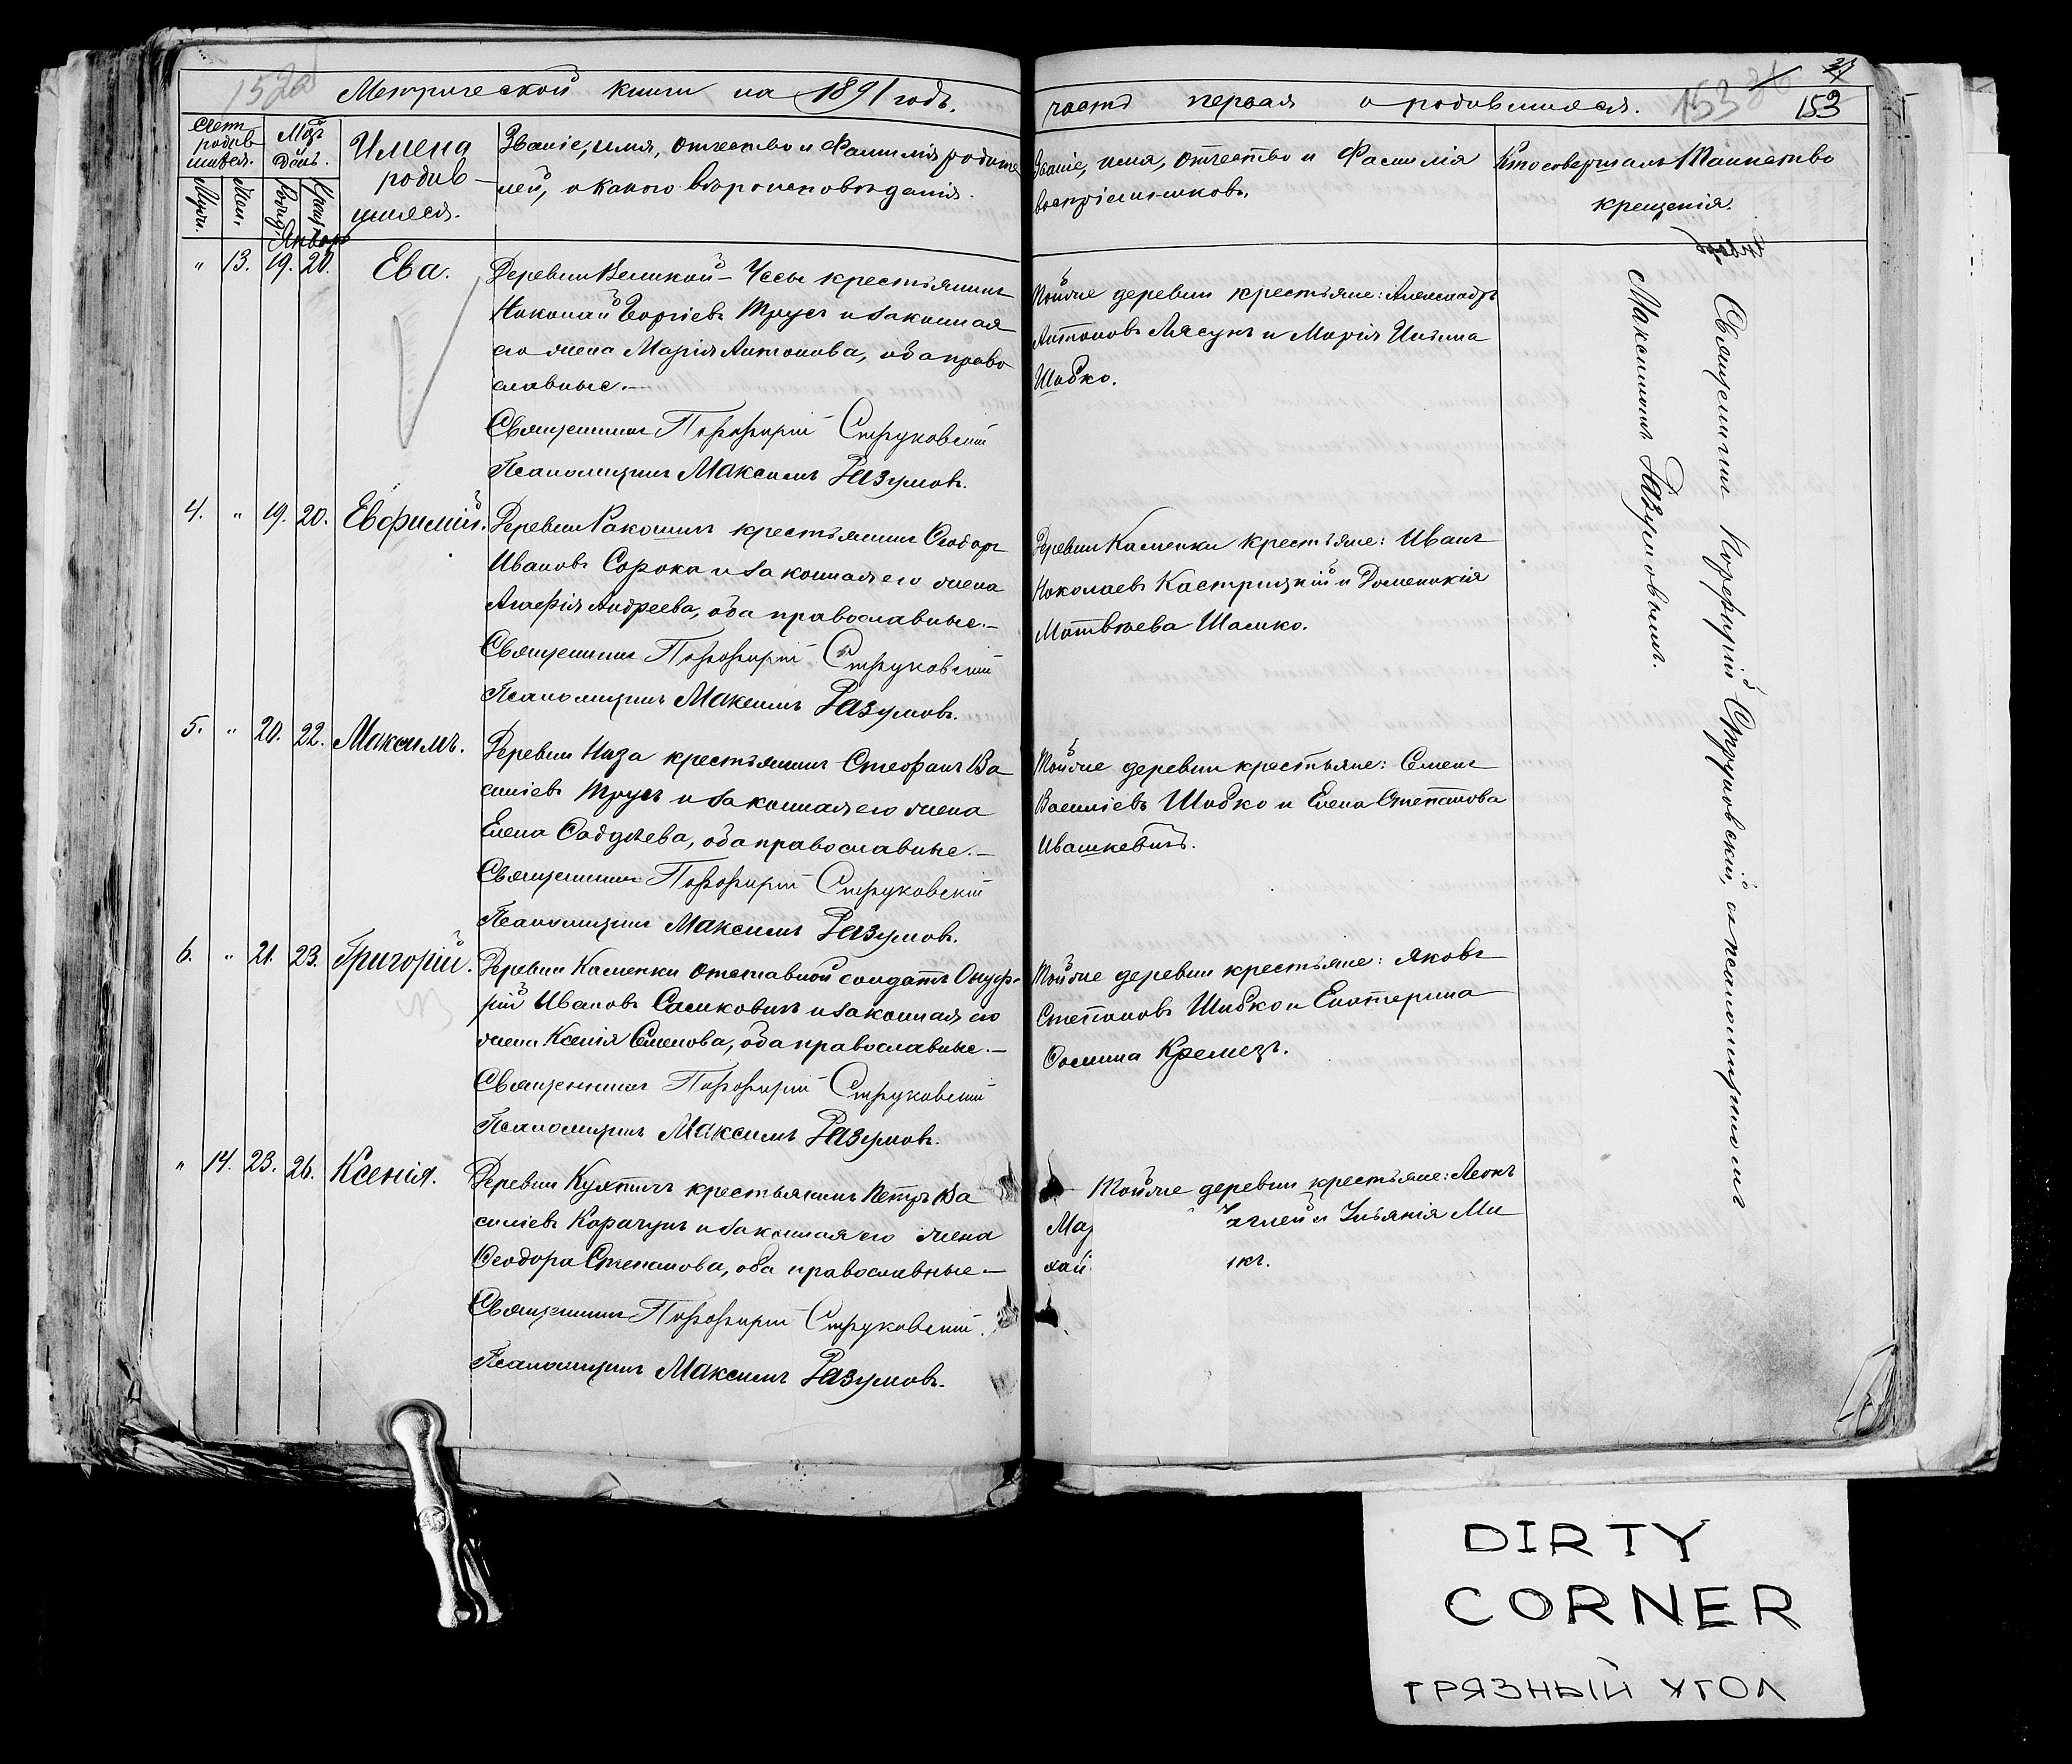 152об
Метрической книги на 1891 годъ,
Счетъ родив
шихся.
Муж.
Жен.
Мѣс.
День.
Рожд.
Крещ.
Имена
родив-
шихся.
Званіе, имя, отчество и фамилія родите
лей, и какого вѣроисповѣданія.
Январь
" 13. 19. 20. Ева.
Деревни Великой-Уссы крестьянинъ
Николай Георгіевъ Трусъ и законная
его жена Марія Антонова, оба право
славные.—
Священникъ Порфирій Струковскій
Псаломщикъ Максимъ Разумовъ.
4. " 19. 20. Евфимій.
Деревни Ракошичъ крестьянинъ Ѳеодоръ
Ивановъ Сорока и законная его жена
Агафія Андреева, оба православные.—
Священникъ Порфирій Струковскій
Псаломщикъ Максимъ Разумовъ.
5. " 20. 22. Максимъ.
Деревни Низа крестьянинъ Стефанъ Ва
силіевъ Трусъ и законная его жена
Елена Ѳаддѣева, оба православные.—
Священникъ Порфирій Струковскій
Псаломщикъ Максимъ Разумовъ.
6. " 21. 23. Григорій.
Деревни Каменки отставной солдатъ Онуф-
рій Ивановъ Сашковичъ и законная его
жена Ксенія Семенова, оба православные.—
Священникъ Порфирій Струковскій
Псаломщикъ Максимъ Разумовъ.
" 14. 23. 26. Ксенія.
Деревни Кухтичъ крестьянинъ Петръ Ва
силіевъ Карачунъ и законная его жена
Ѳеодора Степанова, оба православные.—
Священникъ Порфирій Струковскій.
Псаломщикъ Максимъ Разумовъ.
153
153
часть первая о родившихся.
Званіе, имя, отчество и фамилія
воспріемниковъ.
Кто совершалъ Таинство
крещенія.
Тойже деревни крестьяне: Александръ
Антоновъ Лясунъ и Марія Ильина
Шибко.
Деревни Каменки крестьяне: Иванъ
Николаевъ Кастрицкій и Доменикія
Матвѣева Шашко.
Тойже деревни крестьяне: Семенъ
Василіевъ Шибко и Елена Степанова
Ивашкевичъ.
Тойже деревни крестьяне: Яковъ
Степановъ Шибко и Екатерина
Ѳомина Кремезъ.
Тойже деревни крестьяне: Леонъ
Мар углей и Ульянія Ми
хай икъ.
Священникъ Порфирій Струковскій, съ псаломщикомъ
Максимомъ Разумовымъ.
DIRTY
CORNER
ГРЯЗНЫЙ УГОЛ